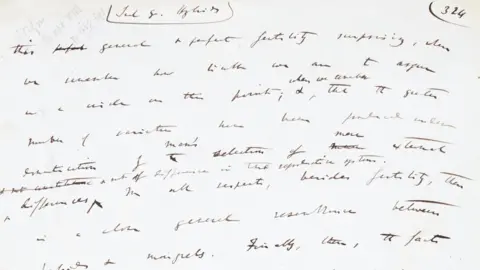 324
this general & perfect fertility surprising, when
we remember how liable we are to argue
in a circle on this point; &, when we remember that the greater
number of varieties have been produced under
domestication by man's selection of mere external
differences, & not of difference in the reproductive system.
In all respects, besides fertility, there
is a close general resemblance between
hybrids & mongrels. Finally, then, the facts